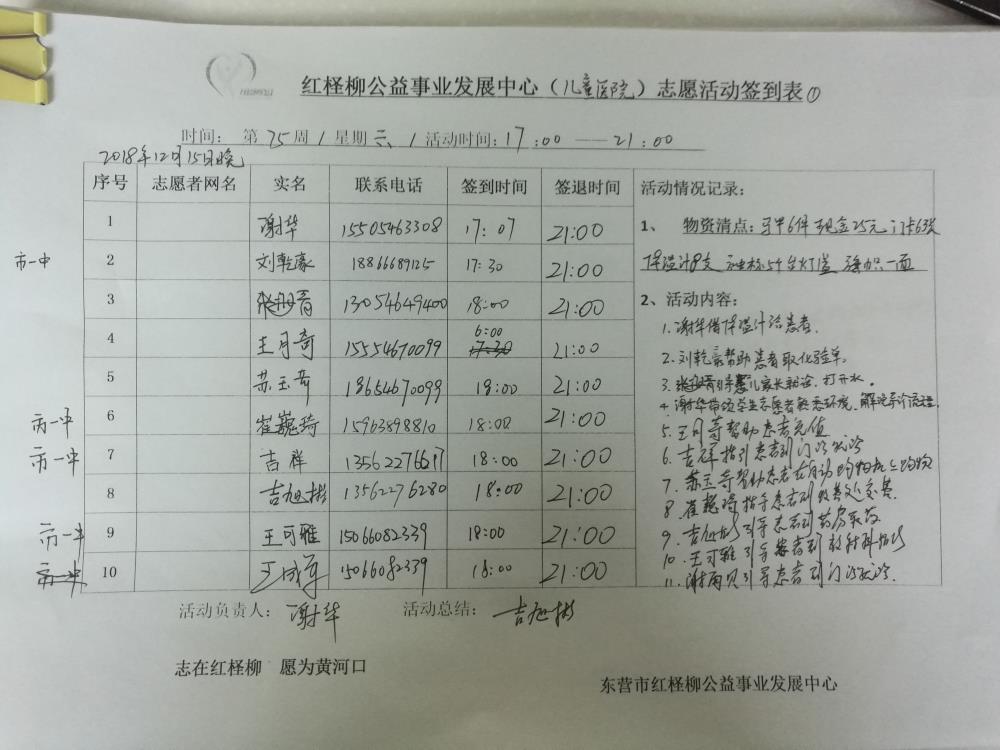 红柽柳公益事业发展中心（儿童医院）志愿活动签到表①
时间：第75周/星期六/活动时间：17:00——21:00
2018年12月15日晚
序号 志愿者网名 实名 联系电话 签到时间 签退时间 活动情况记录：
1 谢华 15505463308 17:07 21:00
市一中 2 刘乾豪 18866689125 17:30 21:00
3 13054649400 18:00 21:00
4 王可奇 15554670099 6:00 17:30 21:00
5 苏玉奇 18654670099 18:00 21:00
市一中 6 崔巍琦 15963898810 18:00 21:00
市一中 7 吉祥 13562276617 18:00 21:00
8 吉旭彬 13562276280 18:00 21:00
市一中 9 王可雅 15066082339 18:00 21:00
市一中 10 王成军 15066082339 18:00 21:00
1、 物资清点：马甲6件 现金25元 门卡6张
体温计8支 台灯1盏 一面
2、活动内容：
1.谢华借体温计给患者.
2.刘乾豪帮助患者取化验单.
3. 引导患儿家长就诊、打开水。
4.谢华带领学生志愿者熟悉环境、解说导诊流程.
5.王可奇帮助患者充值
6.吉祥指引患者到门诊就诊
7.苏玉奇帮助患者在自动购物机上购物
8.崔巍琦指导患者到收费处交费
9.吉旭彬引导患者到药房取药
10.王可雅引导患者到放射科拍片
11.谢雨贝引导患者到门诊就诊.
活动负责人：谢华 活动总结：吉旭彬
志在红柽柳 愿为黄河口
东营市红柽柳公益事业发展中心